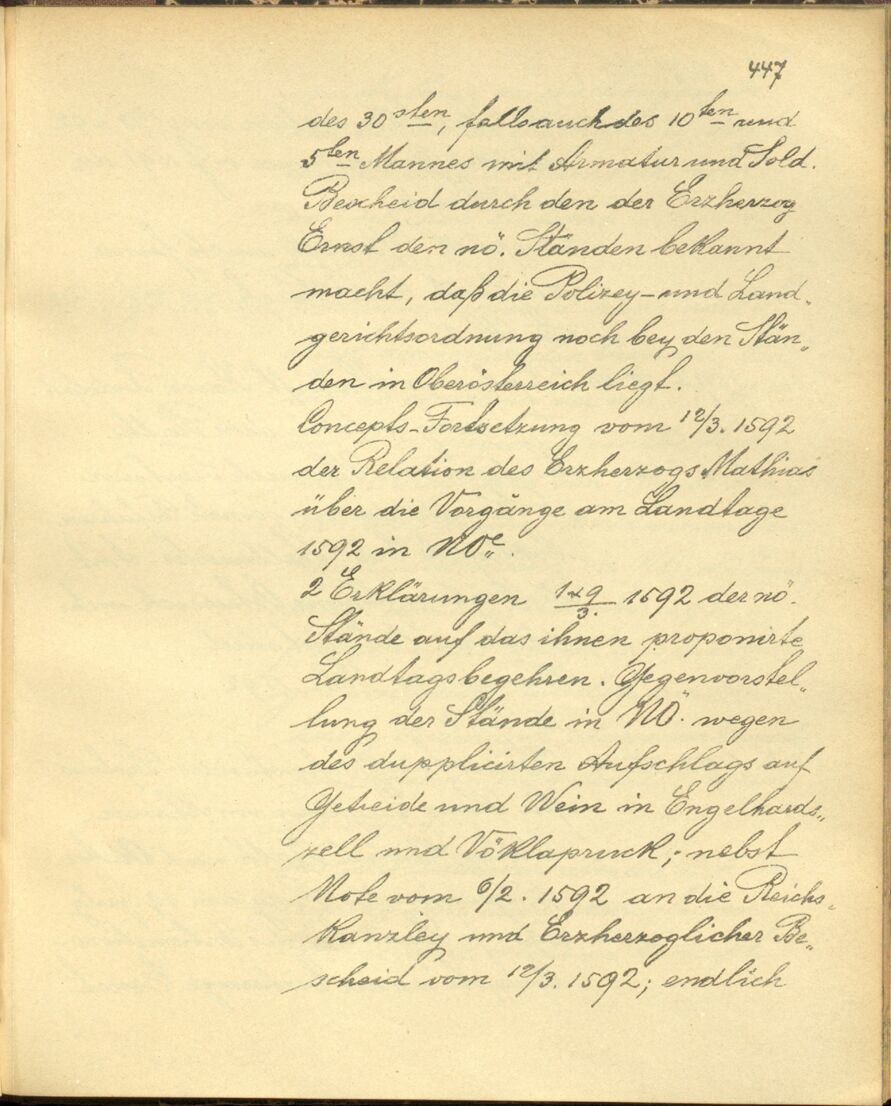 447
des 30sten, falls auch des 10ten und
5ten Mannes mit Armatur und Sold.
Bescheid durch den der Erzherzog
Ernst den nö. Ständen bekannt
macht, daß die Polizey- und Land„
gerichtsordnung noch bey den Stän„
den in Oberösterreich liegt.
Concepts-Fortsetzung vom 12/3. 1592
der Relation des Erzherzogs Mathias
über die Vorgänge am Landtage
1592 in NOe.
2 Erklärungen 1+9/3. 1592 der nö.
Stände auf das ihnen proponirte
Landtagsbegehren. Gegenvorstel„
lung der Stände in NÖ. wegen
des dupplicirten Aufschlags auf
Getreide und Wein in Engelhards„
zell und Vöklapruck; nebst
Note vom 6/2. 1592 an die Reichs„
kanzley und Erzherzoglicher Be„
scheid vom 12/3. 1592; endlich